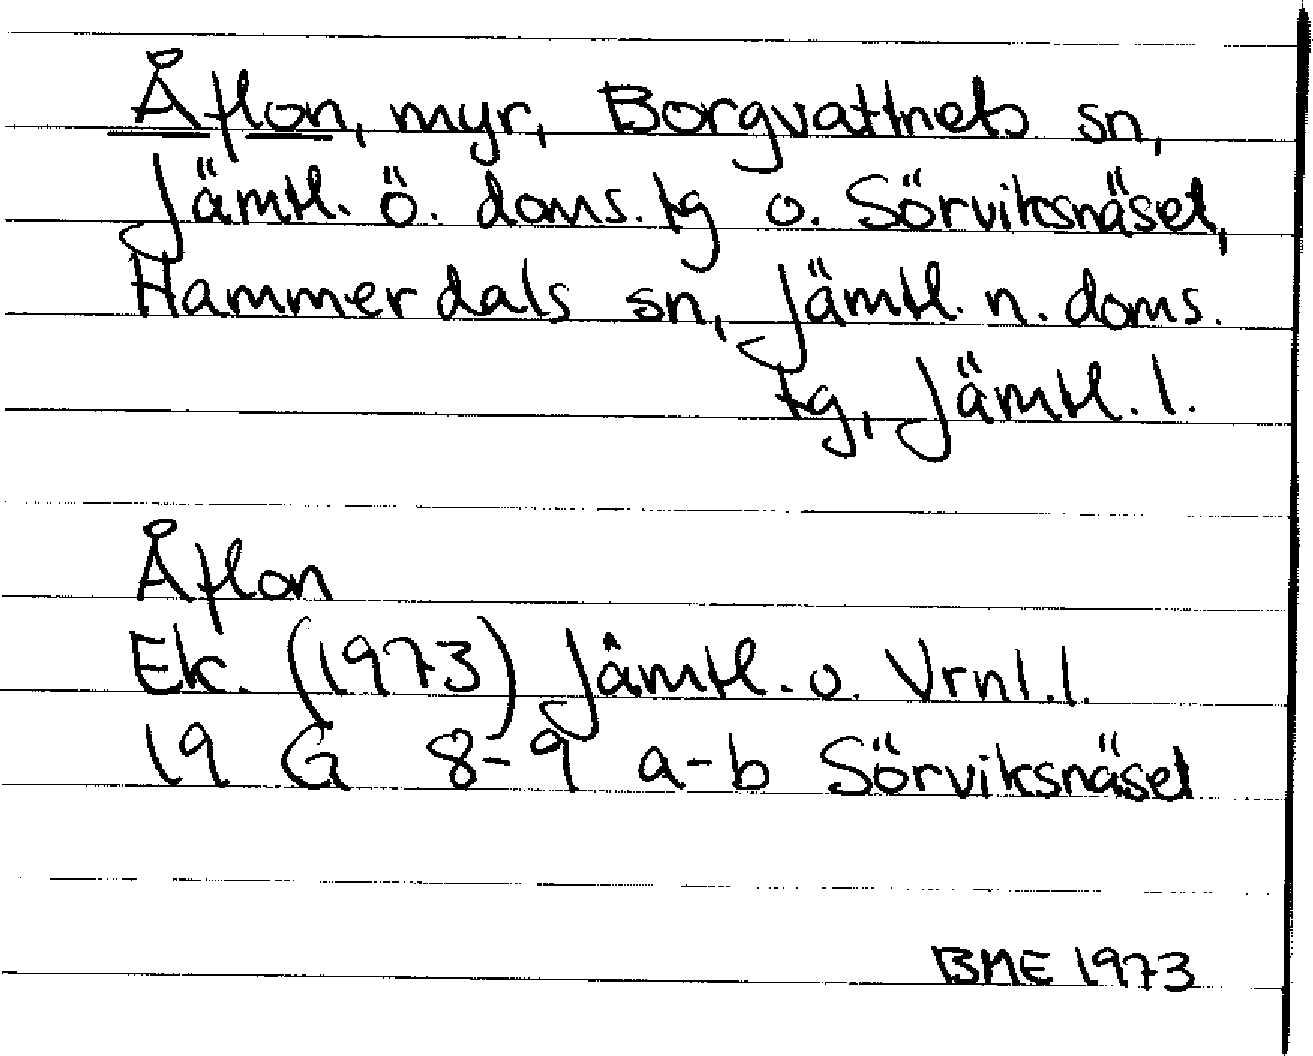 Åflon, myr, Borgvattnets sn,
Jämtl. ö. doms. tg o. Sörviksnäset,
Hammerdals sn, Jämtl. n. doms.
tg, Jämtl. l.
Åflon
Ek. (1973) Jämtl. o. Vrnl. l.
19 G 8-9 a-b Sörviksnäset
BME 1973